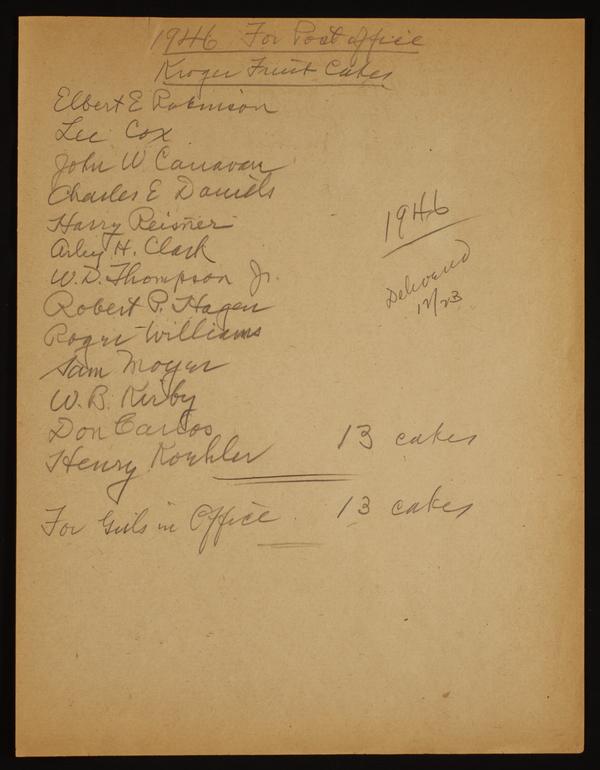 1946 For Post office
Kroger Fruit Cakes
Elbert E Robinson
Lee Cox
John W Canavan
Charles E Daniels
Harry Reisner
1946
Arley H. Clark
W. D. Thompson Jr.
Delivered
12/23
Robert P. Hagen
Roger Williams
Sam Moyer
W. B. Kirby
Don Carlos
13 cakes
Henry Koehler
For Girls in Office 13 cakes